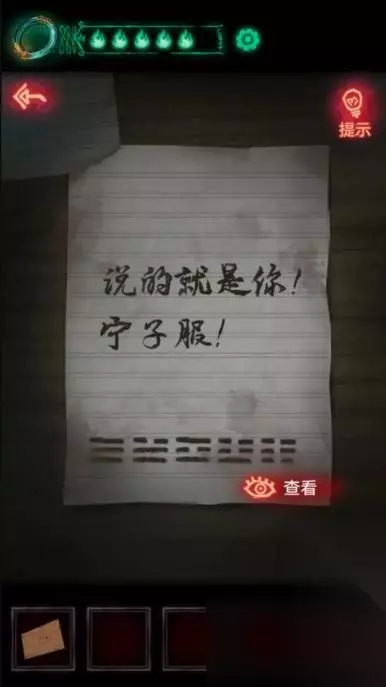 提示
说的就是你！
宁子服！
查看